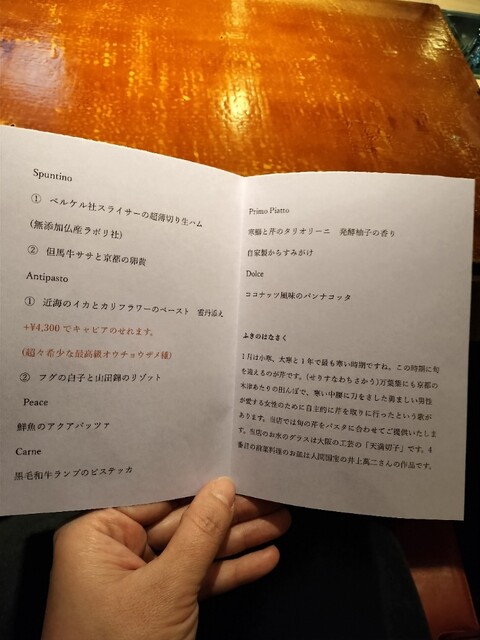 Spuntino
① ベルケル社スライサーの超薄切り生ハム
(無添加仏産ラポリ社)
② 但馬牛ササと京都の卵黄
Antipasto
① 近海のイカとカリフラワーのペースト 雲丹添え
+¥4,300でキャビアのせれます。
(超々希少な最高級オウチョウザメ種)
② フグの白子と山田錦のリゾット
Peace
鮮魚のアクアパッツァ
Carne
黒毛和牛ランプのビステッカ
Primo Piatto
寒鰤と芹のタリオリーニ 発酵柚子の香り
自家製からすみがけ
Dolce
ココナッツ風味のパンナコッタ
ふきのはなさく
1月は小寒、大寒と1年で最も寒い時期ですね。この時期に旬
を迎えるのが芹です。(せりすなわちさかう)万葉集にも京都の
木津あたりの田んぼで、寒い中腰に刀をさした勇ましい男性
が愛する女性のために自主的に芹を取りに行ったという歌が
あります。当店では旬の芹をパスタに合わせてご提供いたしま
す。当店のお水のグラスは大阪の工芸の「天満切子」です。4
番目の前菜料理のお皿は人間国宝の井上萬二さんの作品です。